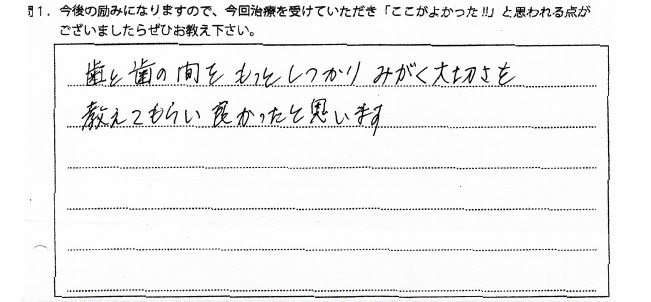 問1. 今後の励みになりますので、今回治療を受けていただき「ここがよかった!!」と思われる点が
ございましたらぜひお教え下さい。
歯と歯の間をもっとしっかりみがく大切さを
教えてもらい良かったと思います